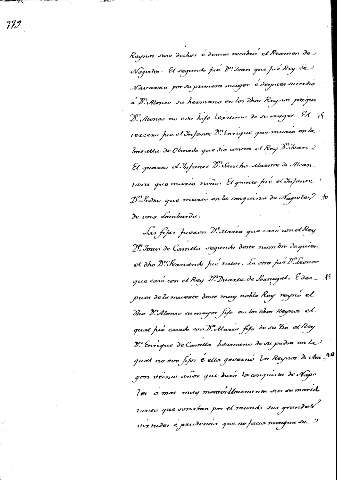 Reynos suso dichos e demas membro el Reamen de
Napoles. El segundo fué Dn Joan que fué Rey de
Navarra por su primera muger e despues sucedio
á Dn Alonso su hermano en los dhos Reynos porque
Dn Alonso no ovo hijo legitimo de su muger. El 5
tercero fué el Infante Dn Enrique que murio en la
batalla de Olmedo que dio contra el Rey Dn Juan.
El quarto el Infante Dn Sancho Maestre de Alcan-
tara que murio niño. El quinto fué el Infante
Dn Pedro que murio en la conquista de Napoles 10
de una lombarda.
Las fijas fueron Dª Maria que casó con el Rey
Dn Juan de Castilla segundo deste nombre de quien
el dho Dn Fernando fué tutor. La otra fué Dª Leonor
que casó con el Rey Dn Duarte de Portugal. E des- 15
pues de la muerte deste muy noble Rey reynó el
dho Dn Alonso su mayor fijo en los dhos Reynos el
qual fué casado con Dª Maria fija de su tio el Rey
Dn Enrique de Castilla hermano de su padre en la
qual no ovo fijos. E ella governó los Reynos de Ara- 20
gon veinte años que duró la conquista de Napo-
les o mas muy maravillosamente sin su marido
tanto que sonaban por el mundo sus grandes
virtudes e prudencia que no facia mengua su